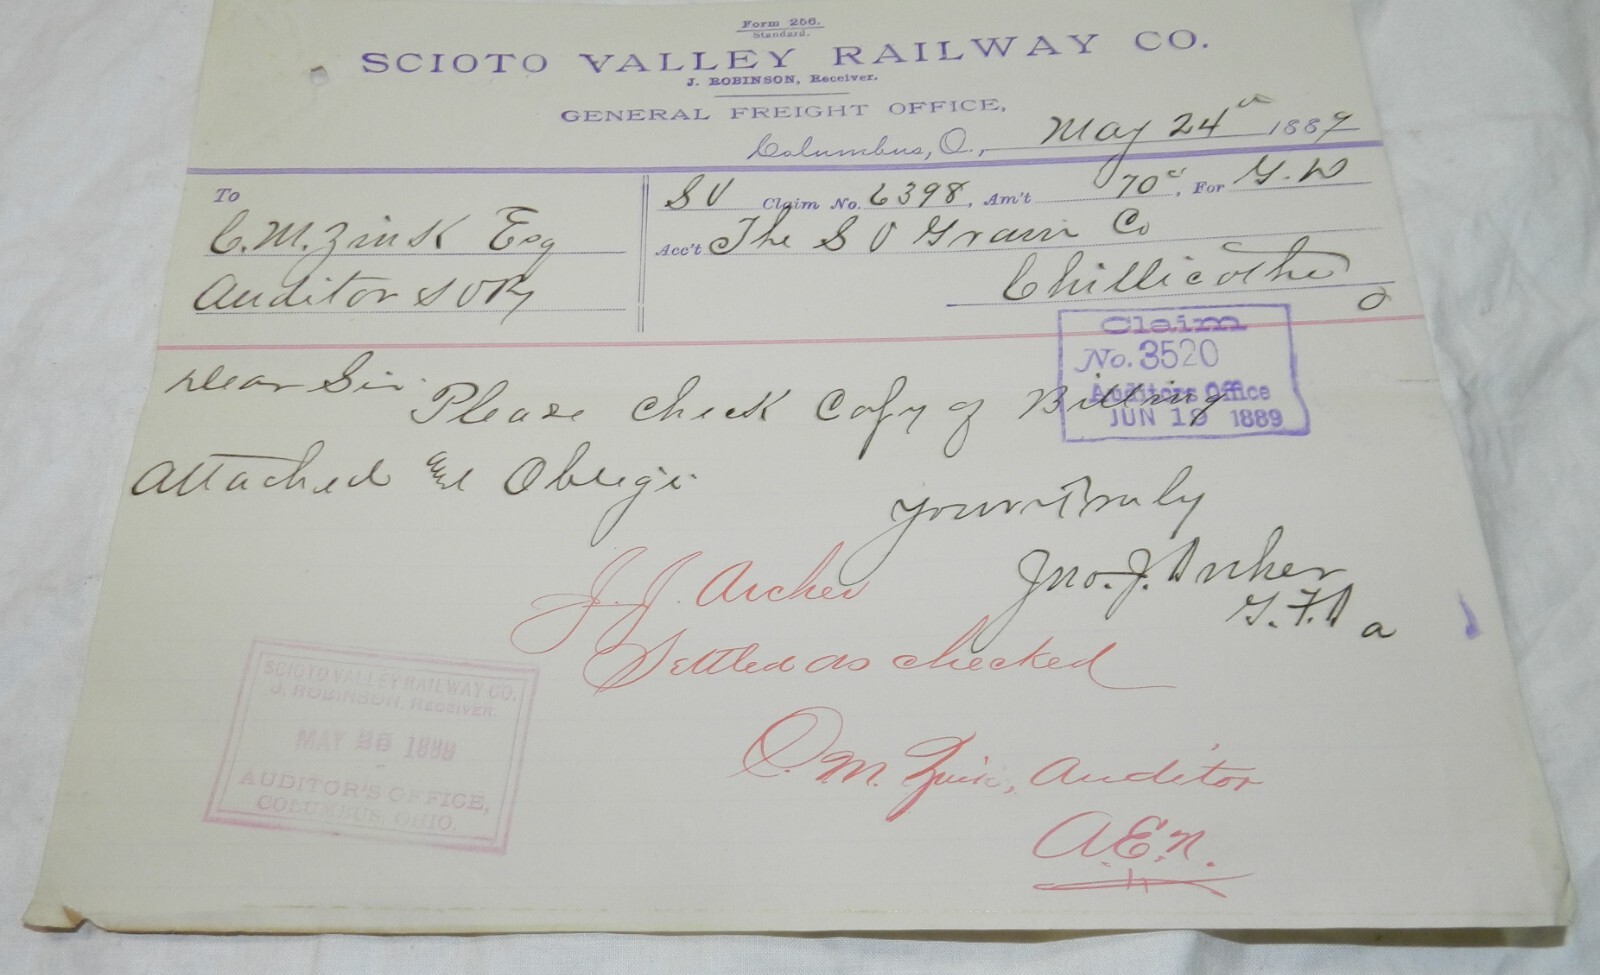 Form 256.
Standard.
SCIOTO VALLEY RAILWAY CO.
J. ROBINSON, Receiver.
GENERAL FREIGHT OFFICE,
Columbus, O., May 24th 1889
To
C. M. Zink Esq
Auditor S V Ry
S V Claim No. 6398, Am't 70c, For G. W
Acc't The S V Grain Co
Chillicothe
O
Claim
No. 3520
Auditors Office
JUN 19 1889
Dear Sir
Please check Copy of Billing
attached and Oblige
Yours Truly
Jno. J. Archer
G. F. A
J. J. Archer
Settled as checked
C. M. Zink, Auditor
A. E. N.
SCIOTO VALLEY RAILWAY CO.
J. ROBINSON, RECEIVER.
MAY 1889
AUDITOR'S OFFICE,
COLUMBUS, OHIO.